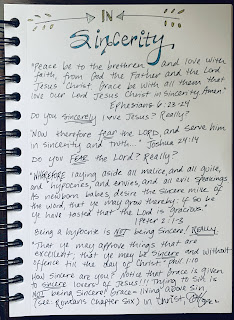 IN
Sincerity
"Peace be to the brethren, and love with
faith, from God the Father and the Lord
Jesus Christ. Grace be with all them that
love our Lord Jesus Christ in sincerity. Amen."
Ephesians 6:23-24
Do you sincerely love Jesus? Really?
"Now therefore fear the LORD, and serve him
in sincerity and truth..." Joshua 24:14
Do you FEAR the Lord? Really?
"Wherefore laying aside all malice, and all guile,
and hypocrisies, and envies, and all evil speakings
As newborn babes, desire the sincere milk of
the word, that ye may grow thereby: If so be
ye have tasted that the Lord is gracious."
1 Peter 2:1-3
Being a hypocrite is NOT being sincere! Really.
"That ye may approve things that are
excellent; that ye may be sincere and without
offence till the day of Christ." Phil 1:10
How sincere are you? Notice that grace is given
to sincere lovers of Jesus!!! Trying to sin is
NOT being sincere! Grace = living above sin.
(see: Romans Chapter Six) In Christ,